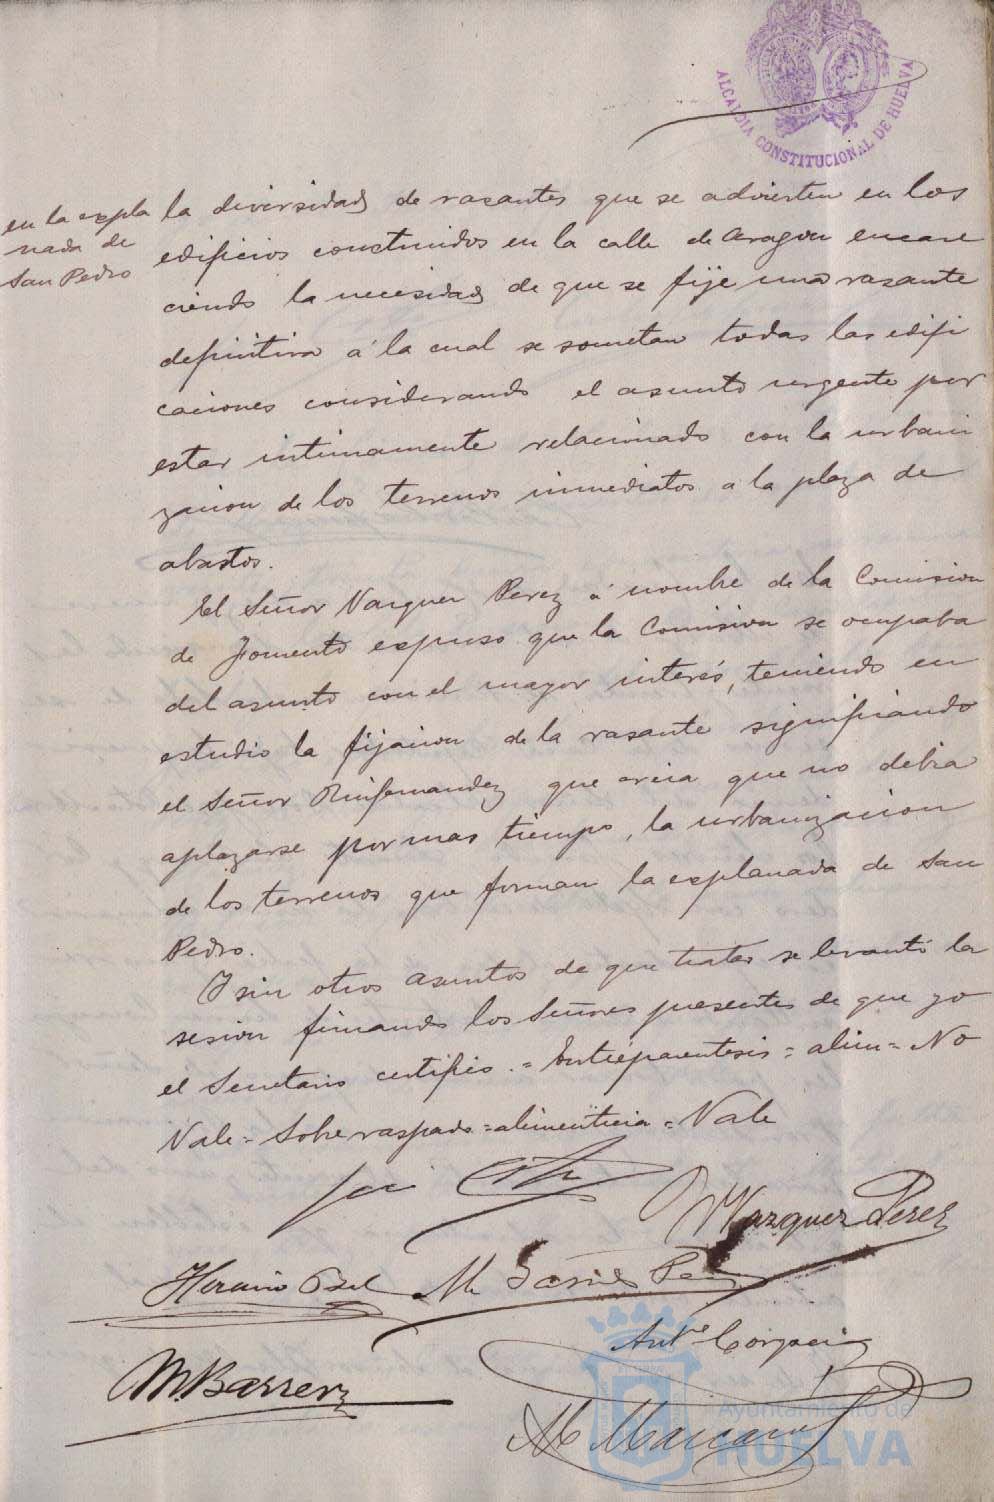 ALCALDIA CONSTITUCIONAL DE HUELVA
en la expla
nada de
San Pedro
la diversidad de rasantes que se advierten en los
edificios construidos en la calle de Aragon encare
ciendo la necesidad de que se fije una rasante
definitiva á la cual se sometan todas las edifi
caciones considerando el asunto urgente por
estar intimamente relacionado con la urbani
zacion de los terrenos inmediatos a la plaza de
abastos.
El Señor Vazquez Perez á nombre de la Comision
de Fomento expuso que la Comision se ocupaba
del asunto con el mayor interés, teniendo en
estudio la fijacion de la rasante significando
el Señor que creia que no debia
aplazarse por mas tiempo, la urbanizacion
de los terrenos que forman la esplanada de San
Pedro.
Y sin otros asuntos de que tratar se levantó la
sesion firmando los Señores presentes de que yo
el Secretario certifico. = Entreparentesis = alim = No
Vale = Sobre raspado = alimenticia = Vale
M Vazquez Perez
M. Garcia
M Barrera
Antº
Ayuntamiento de
HUELVA